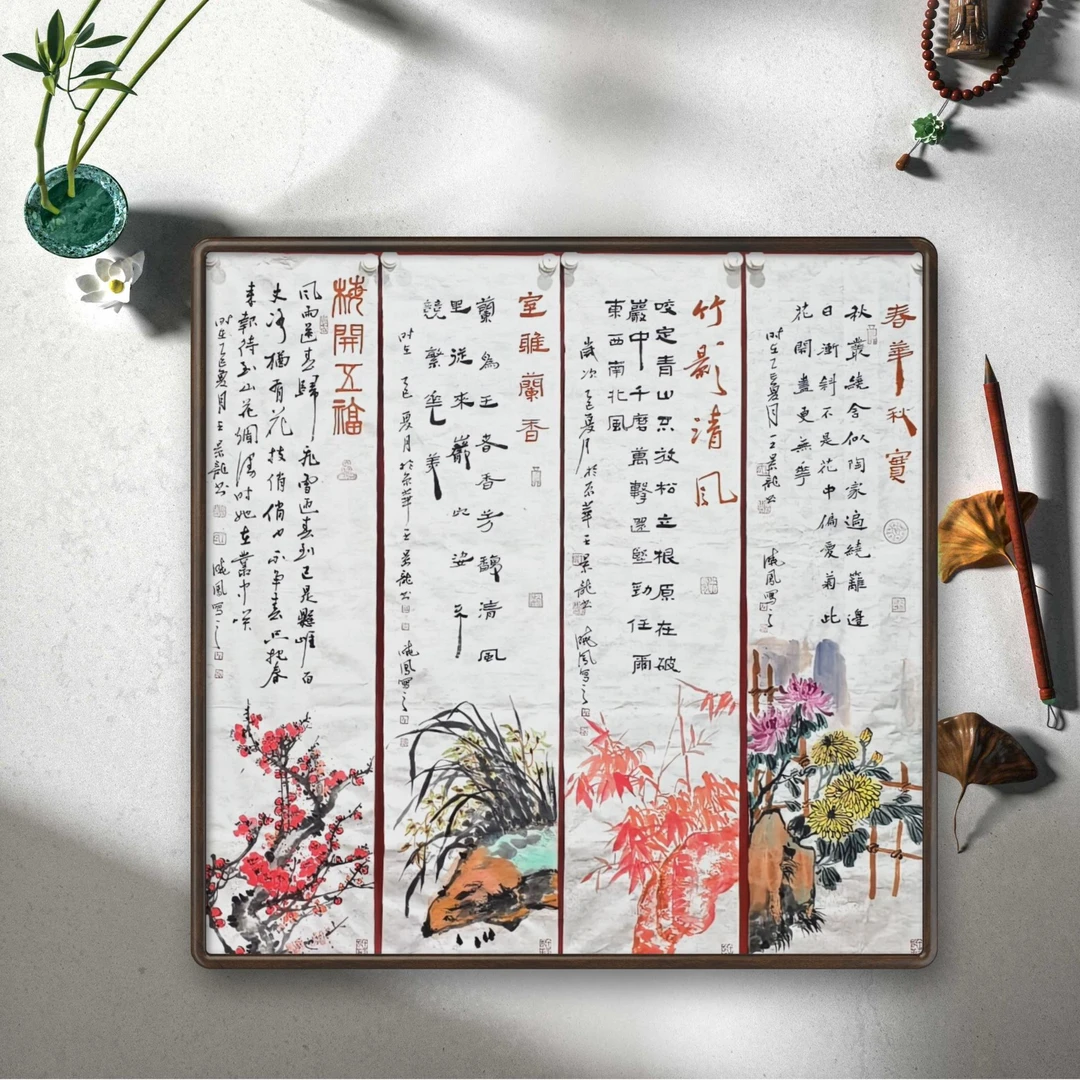 春華秋實
秋叢繞舍似陶家遍繞籬邊
日漸斜不是花中偏愛菊此
花開盡更無華
時在乙巳夏月王景龍书
曉鳳寫之
竹影清風
咬定青山不放松立根原在破
巖中千磨萬擊還堅勁任爾
東西南北風
歲次乙巳夏月於京華王景龍书
曉鳳寫之
室雅蘭香
蘭為王者香芳馥清風
里從來巖穴姿不
競繁華美
時在乙巳夏月於京華王景龍书
曉鳳寫之
梅開五福
風雨送春歸飛雪迎春到已是懸崖百
丈冰猶有花枝俏俏也不爭春只把春
來報待到山花爛漫時她在叢中笑
時在乙巳夏月王景龍书
曉鳳寫之